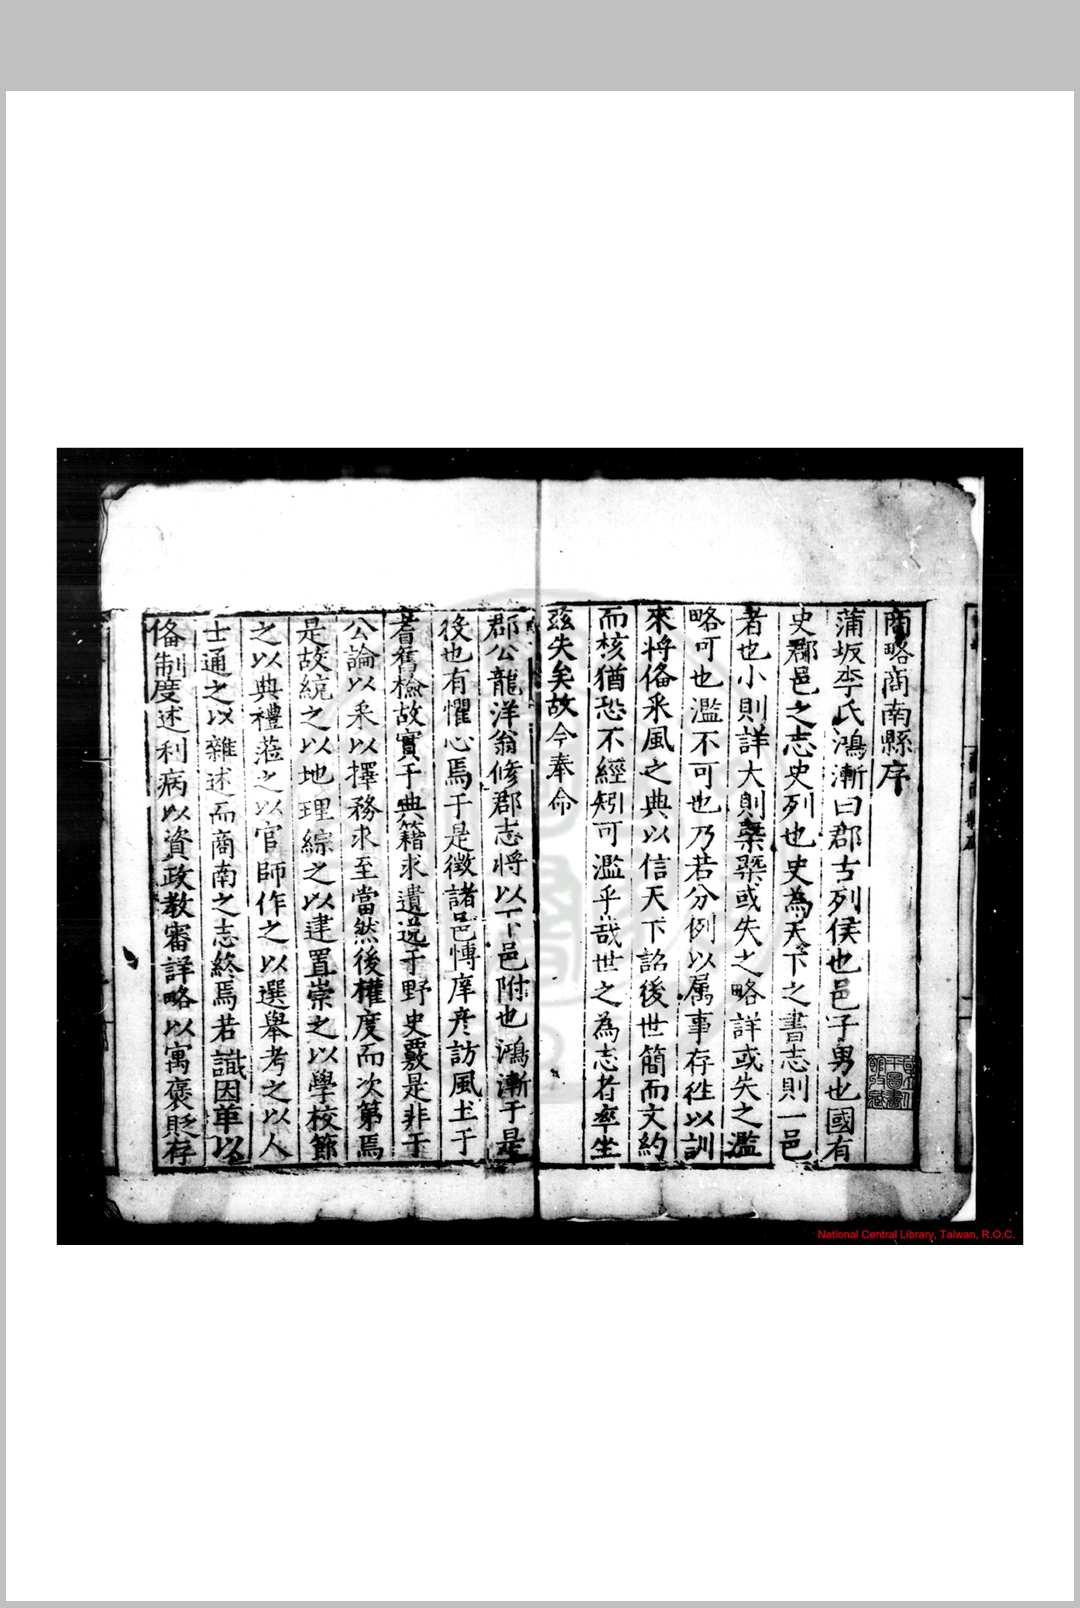 商略商南縣序
蒲坂李氏鴻漸曰郡古列侯也邑子男也國有
史郡邑之志史列也史為天下之書志則一邑
者也小則詳大則槩槩或失之略詳或失之濫
略可也濫不可也乃若分例以属事存徃以訓
來將俻采風之典以信天下詔後世簡而文約
而核猶恐不經矧可濫乎哉世之為志者率坐
茲失矣故今奉命
郡公龍洋翁修郡志將以下邑附也鴻漸于是
後也有懼心焉于是徵諸邑慱庠彥訪風土于
耆舊檢故實于典籍求遺逸于野史覈是非于
公論以采以擇務求至當然後權度而次第焉
是故統之以地理綜之以建置崇之以學校節
之以典禮蒞之以官師作之以選舉考之以人
士通之以雜述而商南之志終焉若識因革以
俻制度述利病以資政教審詳略以寓褒貶存
National Central Library, Taiwan, R.O.C.